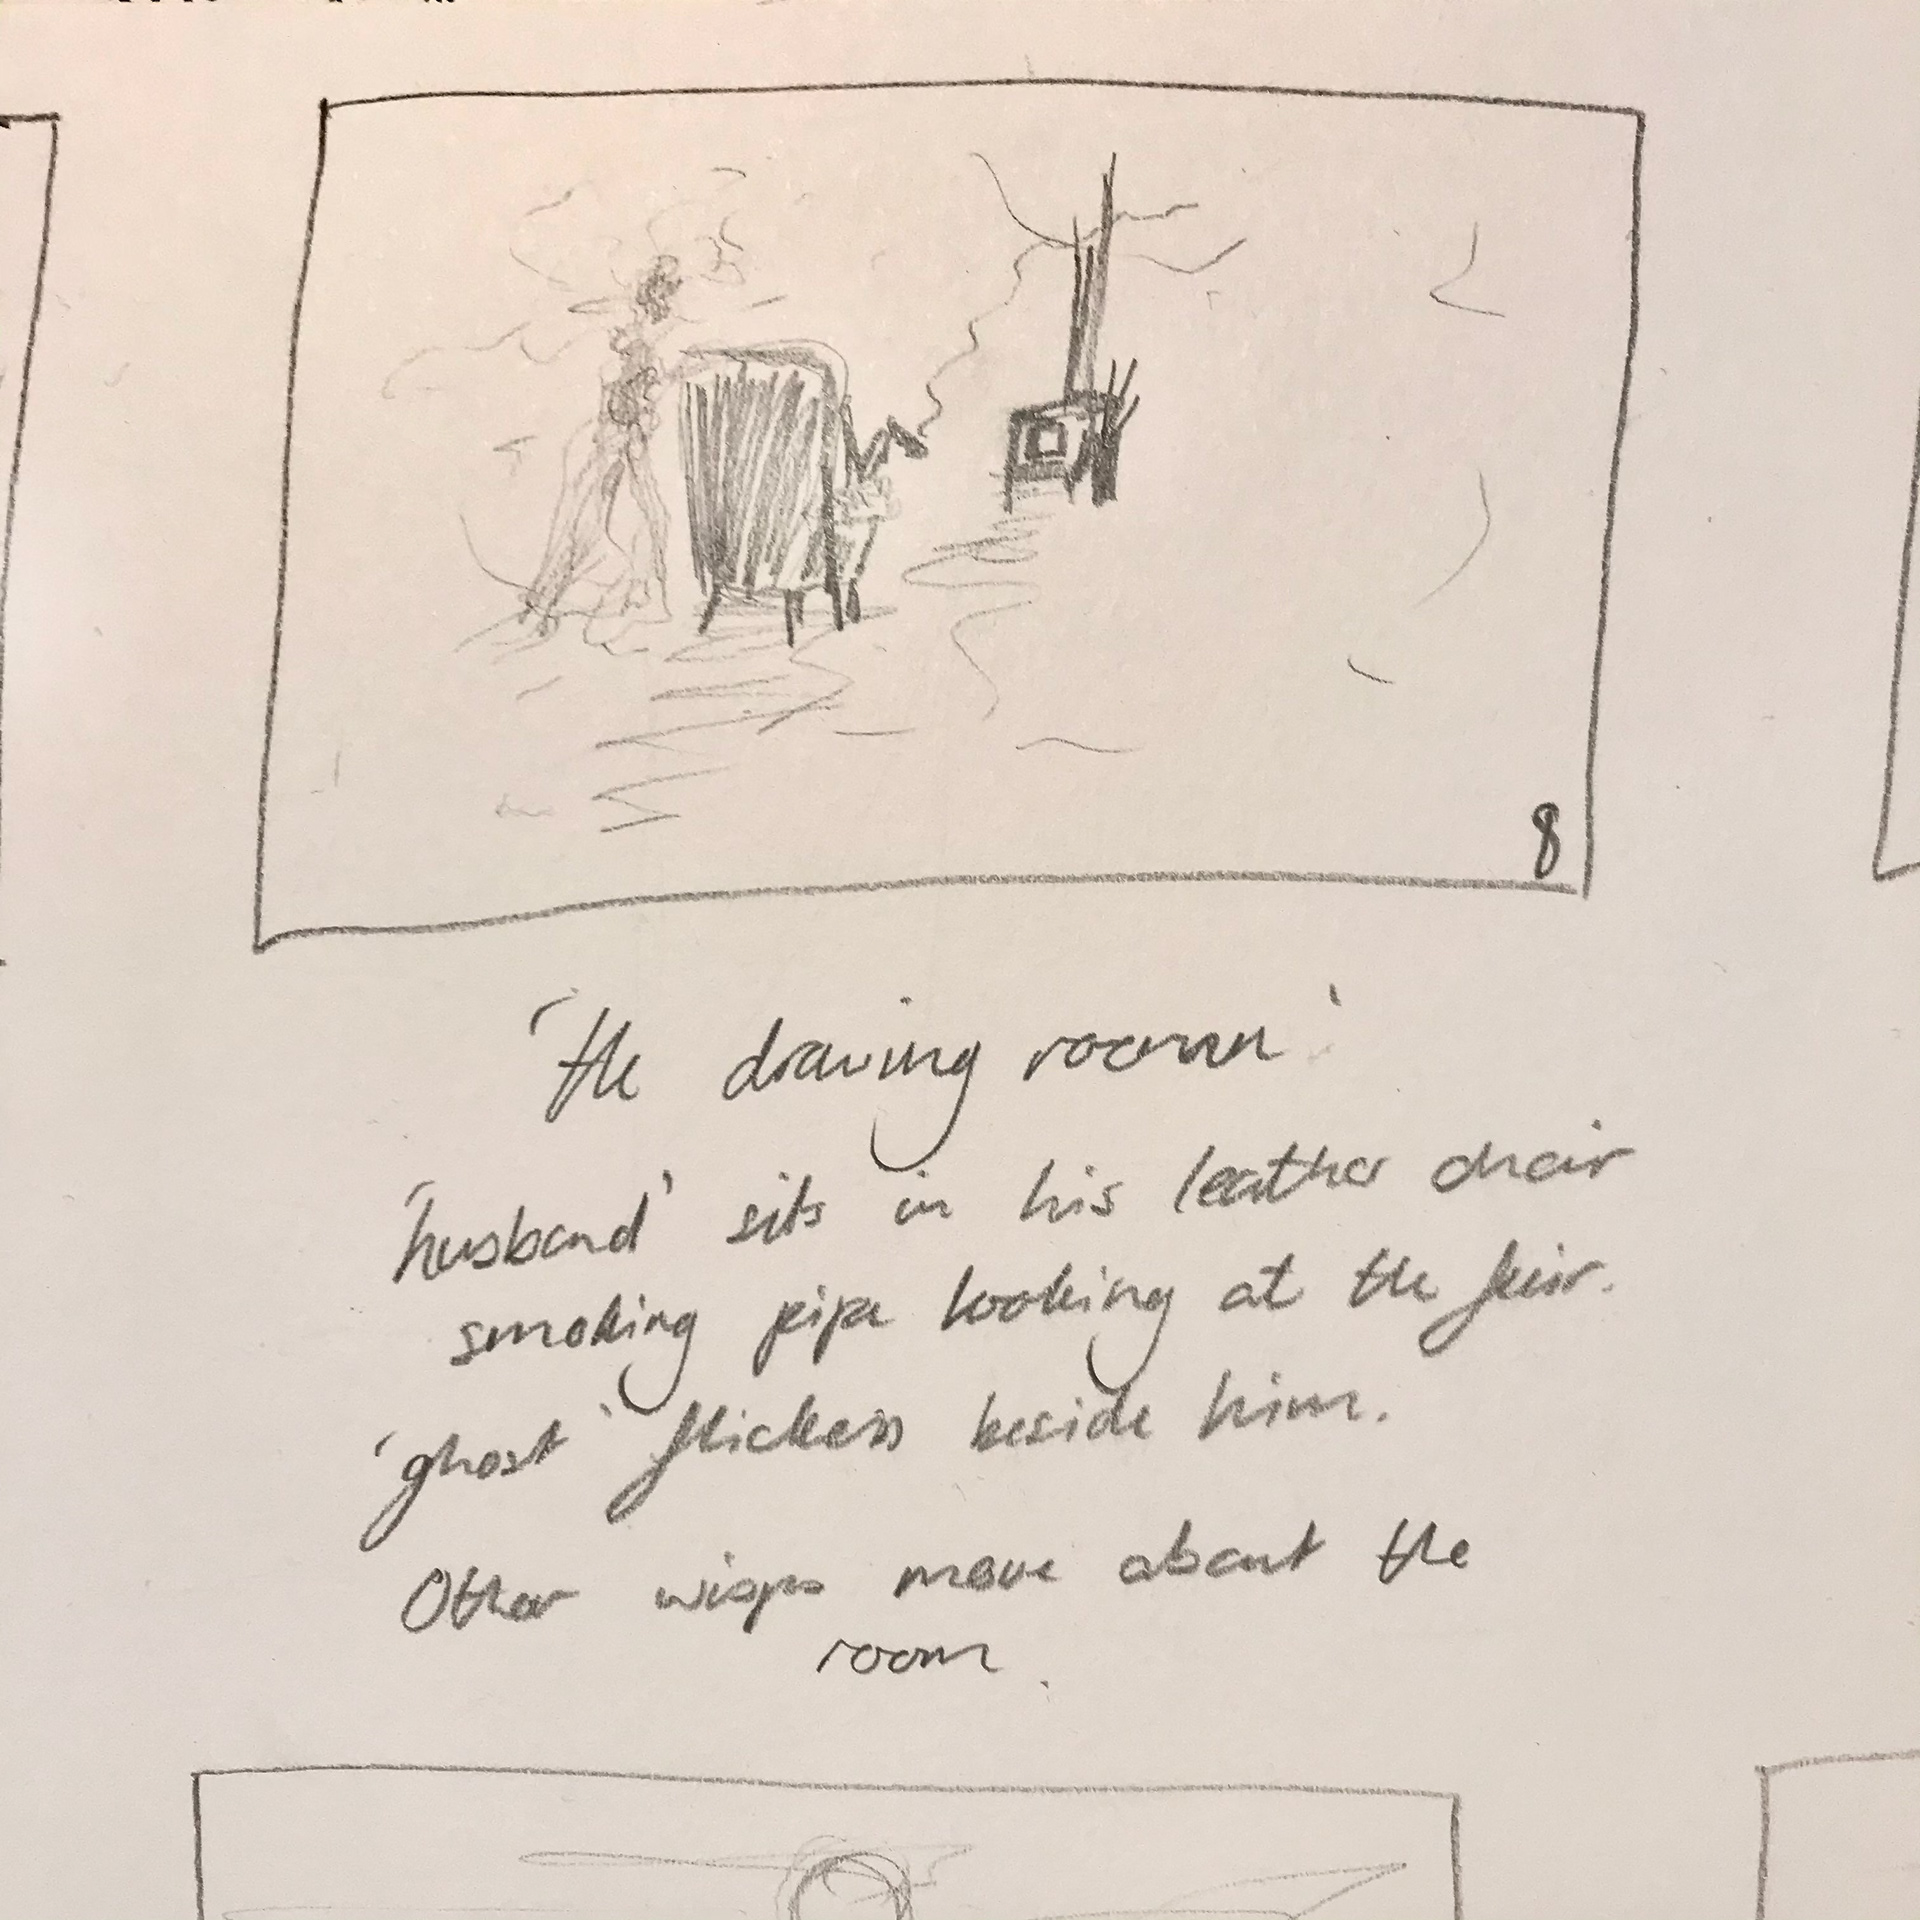 8
'the drawing room'
'husband' sits in his leather chair
smoking pipe looking at the
'ghost' flickers beside him.
Other wisps move about the
room.